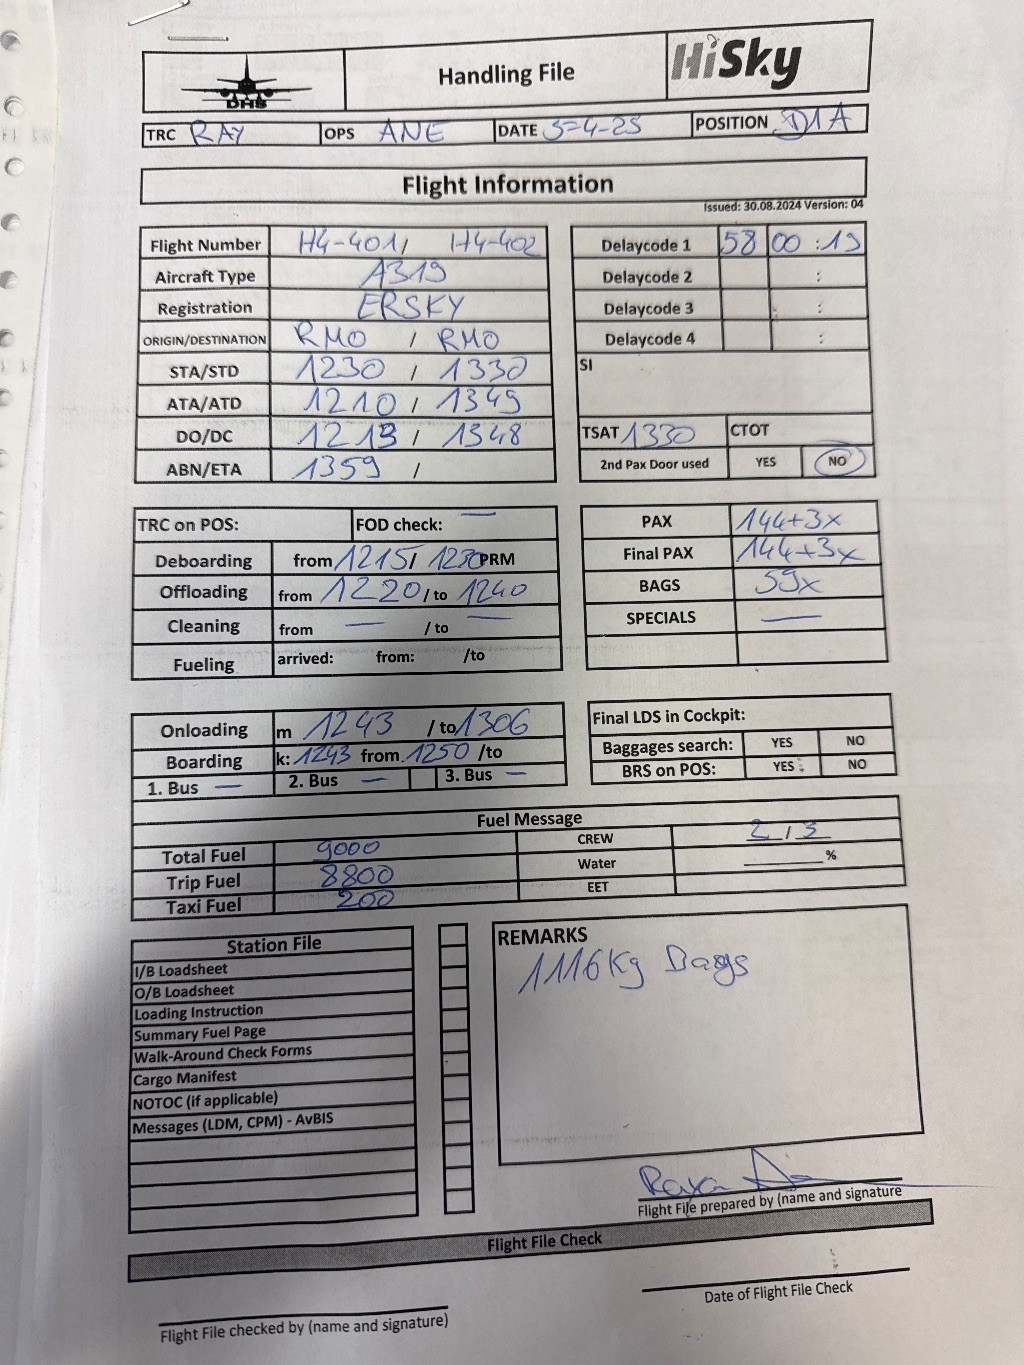 DHS
Handling File
HiSky
TRC RAY OPS ANE DATE 5-4-25 POSITION D1A
Flight Information
Issued: 30.08.2024 Version: 04
Flight Number H4-401/ H4-402
Aircraft Type A319
Registration ERSKY
ORIGIN/DESTINATION RMO / RMO
STA/STD 1230 / 1330
ATA/ATD 1210 / 1349
DO/DC 1213 / 1348
ABN/ETA 1359 /
Delaycode 1 58 00 :19
Delaycode 2 :
Delaycode 3 :
Delaycode 4 :
SI
TSAT 1330 CTOT
2nd Pax Door used YES NO
TRC on POS: FOD check: —
Deboarding from 1215/ 1230 PRM
Offloading from 1220 / to 1240
Cleaning from — / to —
Fueling arrived: from: /to
PAX 144+3x
Final PAX 144+3x
BAGS 59x
SPECIALS —
Onloading m 1243 / to 1306
Boarding k: 1243 from 1250 /to
1. Bus — 2. Bus — 3. Bus —
Final LDS in Cockpit:
Baggages search: YES NO
BRS on POS: YES NO
Fuel Message
Total Fuel 9000 CREW 2 / 3
Trip Fuel 8800 Water %
Taxi Fuel 200 EET
Station File
I/B Loadsheet
O/B Loadsheet
Loading Instruction
Summary Fuel Page
Walk-Around Check Forms
Cargo Manifest
NOTOC (if applicable)
Messages (LDM, CPM) - AvBIS
REMARKS
1116Kg Bags
Flight File prepared by (name and signature
Flight File Check
Flight File checked by (name and signature)
Date of Flight File Check